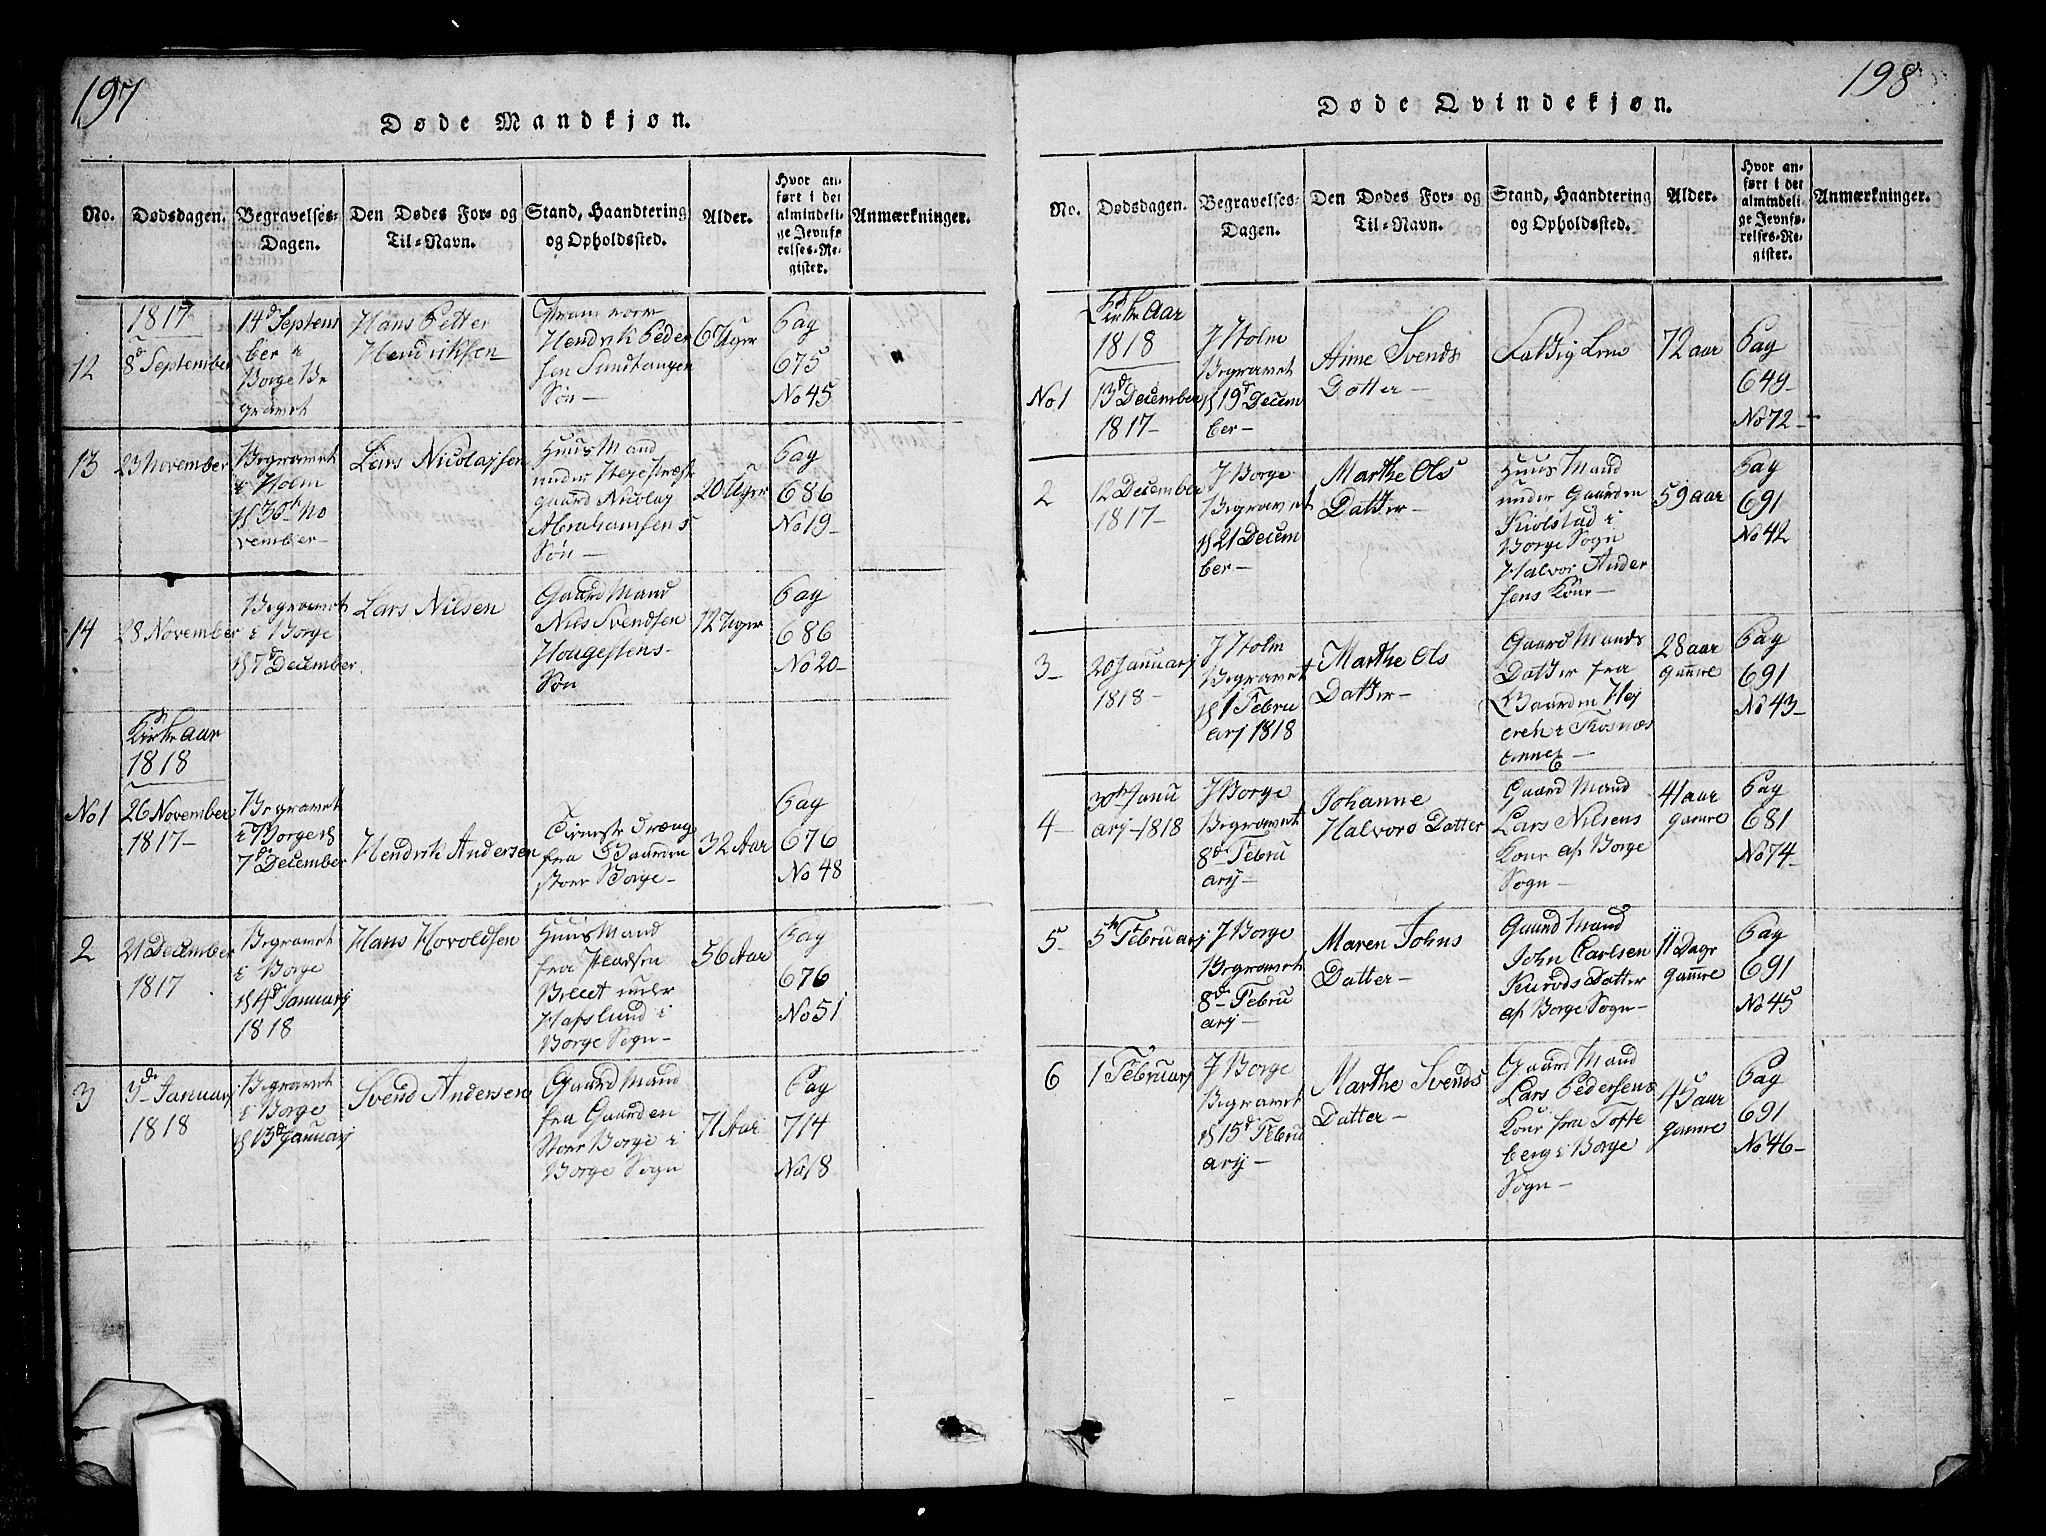 197
Døde Mandkjøn.
No. Dødsdagen. Begravelses-Dagen. Den Dødes For- og Til-Navn. Stand, Haandtering og Opholdssted. Alder. Hvor anført i det almindelige Jevnførelses-Register. Anmærkninger.
1817
12
8d September
14d Septem
ber i
Borge Be
gravet
Hans Petter
Hendriksen
Hendrik Peder
sen Sundtangen
Søn
6 Uger
Pag
675
No 45
13
23 November
Begravet
i Holm
d 30th No
vember
Lars Nicolaysen
Huus Mand
under
gaard Nicolay
Abrahamsens
Søn
20 Uger
Pag
686
No 19
14
28 November
Begravet
i Borge
d 7d December
Lars Nilsen
Gaard Mand
Niels Svendsen
Hougestens
Søn
12 Uger
Pag
686
No 20
Kirke Aar
1818
No 1
26 November
1817
Begravet
i Borge d
7de December
Hendrik Andersen
Tieneste Dreng
fra Gaarden
store Borge
32 Aar
Pag
676
No 48
2
21 December
1817
Begravet
i Borge
d 4d Januarj
1818
Hans Hovoldsen
Huus Mand
fra Pladsen
under
Hafslund i
Borge Sogn
56 Aar
Pag
676
No 51
3
3de Januarj
1818
Begravet
i Borge
d 13d Januarj
Svend Andersen
Gaard Mand
fra Gaarden
Store Borge i
Borge Sogn
71 Aar
Pag
714
No 18
198
Døde Qvindekjøn.
No. Dødsdagen. Begravelses-Dagen. Den Dødes For- og Til-Navn. Stand, Haandtering og Opholdssted. Alder. Hvor anført i det almindelige Jevnførelses-Register. Anmærkninger.
Kirke Aar
1818
No 1
13d December
1817
J Holm
Begravet
d 19d Decem
ber
Anne Svends
Datter
Fattig Lem
72 aar
Pag
649
No 72
2
12 December
1817
J Borge
Begravet
d 21 Decem
ber
Marthe Ols
Datter
Huus Mand
under Gaarden
Kiølstad i
Borge Sogn
Halvor Ander
sens Kone
59 aar
Pag
691
No 42
3
20 Januarj
1818
J Holm
Begravet
d 1 Febru
arj 1818
Marthe Ols
Datter
Gaard Mands
Datter fra
Gaarden Hej
Annex
28 aar
gamle
Pag
691
No 43
4
30th Janu
arj 1818
J Borge
Begravet
8de Febru
arij
Johanne
Halvors Datter
Gaard Mand
Lars Nilsens
Kone af Borge
Sogn
41 aar
gamle
Pag
681
No 74
5
5th Februarj
J Borge
Begravet
8de Febru
arij
Maren Johns
Datter
Gaard Mand
John Carlsen
Datter
af Borge Sogn
11 Dage
gamle
Pag
691
No 45
6
1 Februarj
J Borge
Begravet
d 15d Febru
arij
Marthe Svends
Datter
Gaard Mand
Lars Pedersens
Kone fra Tofte
berg i Borge
Sogn
45 aar
gamle
Pag
691
No 46